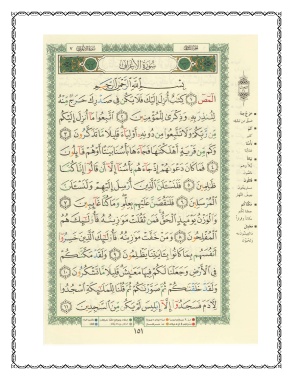 سُورَةُ الْأَعْرَافِ
بِسْمِ اللَّهِ الرَّحْمَٰنِ الرَّحِيمِ
الٓمٓصٓ ١ كِتَابٌ أُنزِلَ إِلَيْكَ فَلَا يَكُن فِي صَدْرِكَ حَرَجٌ مِّنْهُ
لِتُنذِرَ بِهِ وَذِكْرَىٰ لِلْمُؤْمِنِينَ ٢ اتَّبِعُوا مَا أُنزِلَ إِلَيْكُم
مِّن رَّبِّكُمْ وَلَا تَتَّبِعُوا مِن دُونِهِ أَوْلِيَاءَ قَلِيلًا مَّا تَذَكَّرُونَ ٣
وَكَم مِّن قَرْيَةٍ أَهْلَكْنَاهَا فَجَاءَهَا بَأْسُنَا بَيَاتًا أَوْ هُمْ قَائِلُونَ
٤ فَمَا كَانَ دَعْوَاهُمْ إِذْ جَاءَهُم بَأْسُنَا إِلَّا أَن قَالُوا إِنَّا كُنَّا
ظَالِمِينَ ٥ فَلَنَسْأَلَنَّ الَّذِينَ أُرْسِلَ إِلَيْهِمْ وَلَنَسْأَلَنَّ
الْمُرْسَلِينَ ٦ فَلَنَقُصَّنَّ عَلَيْهِم بِعِلْمٍ وَمَا كُنَّا غَائِبِينَ ٧
وَالْوَزْنُ يَوْمَئِذٍ الْحَقُّ فَمَن ثَقُلَتْ مَوَازِينُهُ فَأُولَٰئِكَ هُمُ
الْمُفْلِحُونَ ٨ وَمَنْ خَفَّتْ مَوَازِينُهُ فَأُولَٰئِكَ الَّذِينَ خَسِرُوا
أَنفُسَهُم بِمَا كَانُوا بِآيَاتِنَا يَظْلِمُونَ ٩ وَلَقَدْ مَكَّنَّاكُمْ
فِي الْأَرْضِ وَجَعَلْنَا لَكُمْ فِيهَا مَعَايِشَ قَلِيلًا مَّا تَشْكُرُونَ ١٠
وَلَقَدْ خَلَقْنَاكُمْ ثُمَّ صَوَّرْنَاكُمْ ثُمَّ قُلْنَا لِلْمَلَائِكَةِ اسْجُدُوا
لِآدَمَ فَسَجَدُوا إِلَّا إِبْلِيسَ لَمْ يَكُن مِّنَ السَّاجِدِينَ ١١
١٥١